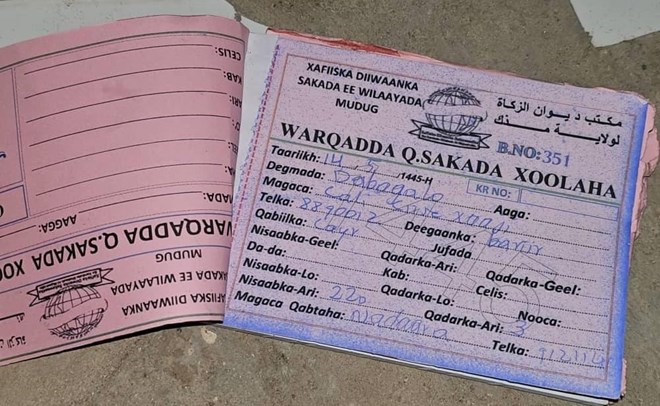 XAFIISKA DIIWAANKA
SAKADA EE WILAAYADA
MUDUG
مكتب ديوان الزكاة
لولاية مدك
B.NO: 351
WARQADDA Q.SAKADA XOOLAHA
Taariikh: 14 5 /1445-H KR NO:
Degmada: Dabagalo Aaga:
Magaca: Cali Xaaji
Telka: 8890012 Deegaanka:
Qabiilka: Cayr Jufada:
Nisaabka-Geel: Qadarka-Ari: Qadarka-Geel:
Da-da: Kab: Celis: Nooca:
Nisaabka-Lo: Qadarka-Lo:
Nisaabka-Ari: 220 Qadarka-Ari: 3
Magaca Qabtaha: Telka:
CELIS:
KAB:
ARI:
AAGGA:
WARQADDA Q.SAKADA XOO
MUDUG
AKADA EE WILAAYADA
AFIISKA DIIWAANKA